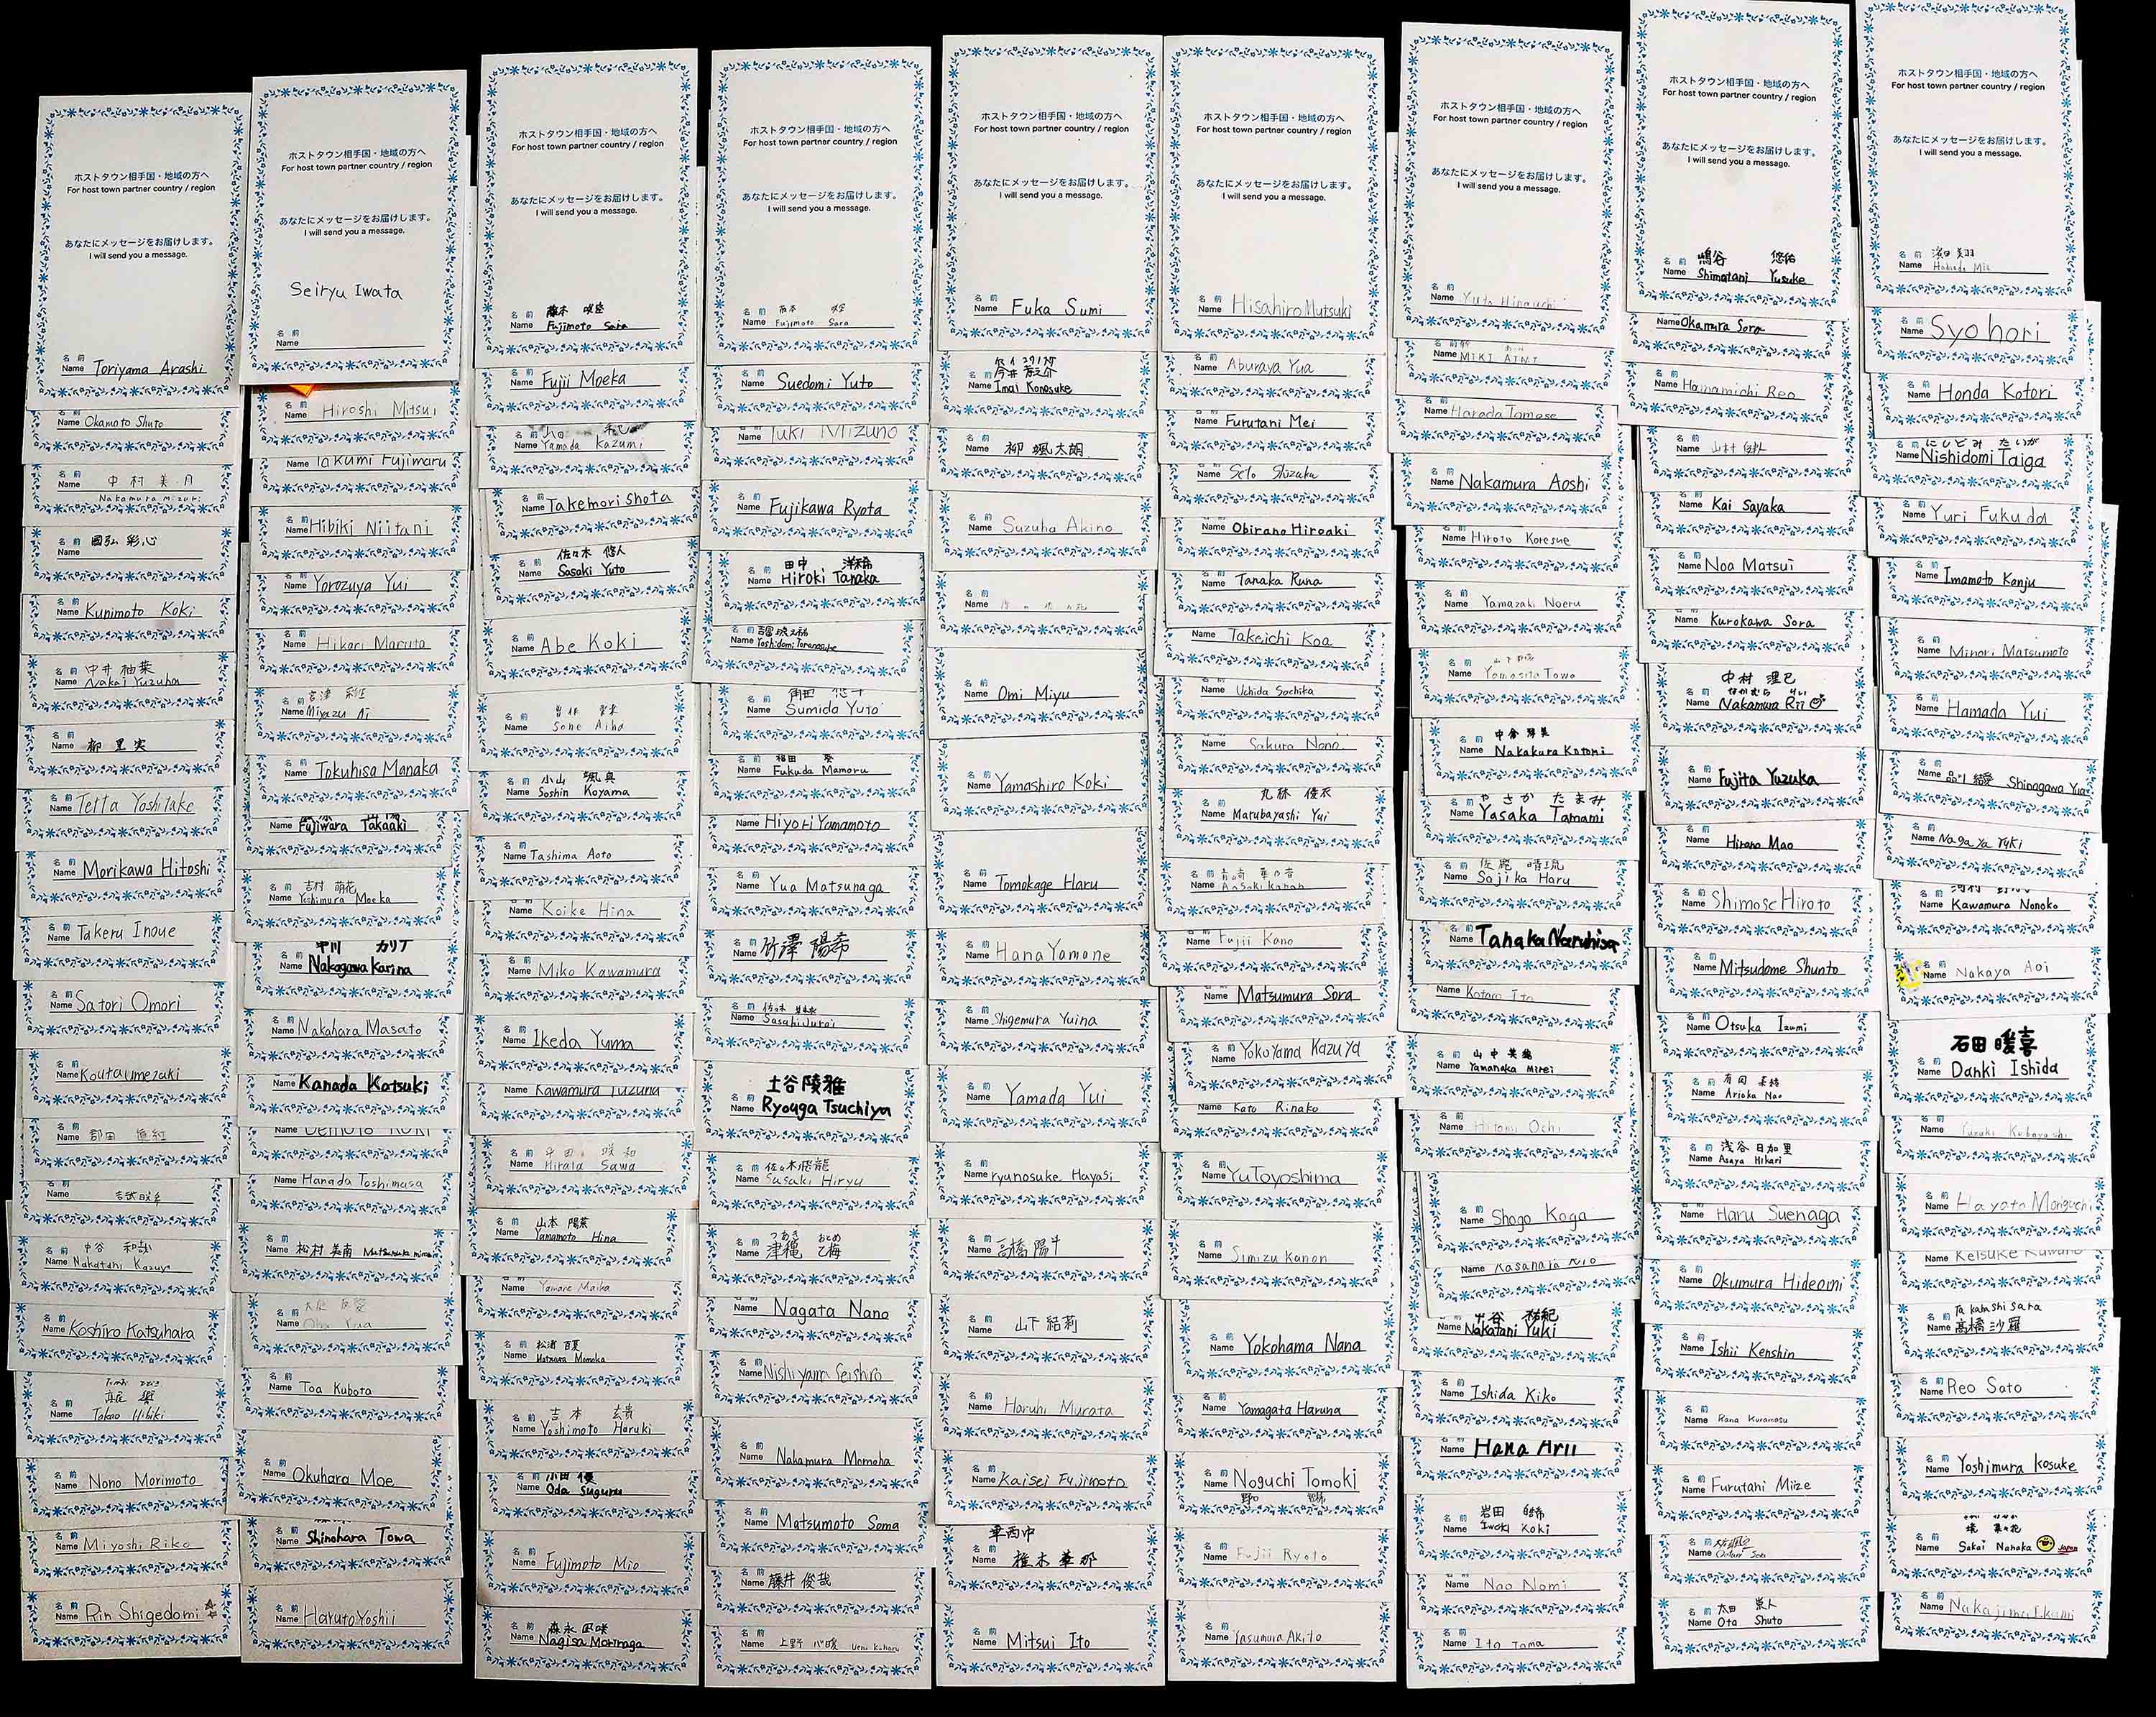 ホストタウン相手国・地域の方へ
For host town partner country / region
あなたにメッセージをお届けします。
I will send you a message.
名前
Name Toriyama Arashi
Name Okamoto Shuto
名前
Name 中村 美月
Nakamura Mizuki
名前 國弘 彩心
Name
名前
Name Kunimoto Koki
名前 中井 柚葉
Name Nakai Yuzuha
名前
Name 柳 里実
名前
Name Tetta Yoshitake
名前
Name Morikawa Hitoshi
名前
Name Takeru Inoue
名前
Name Satori Omori
名前
Name Kouta Umezaki
名前
Name
Name
名前 中谷 和哉
Name Nakatani Kazuya
名前
Name Koshiro Katsuhara
名前
Name Takao Hibiki
名前
Name Nono Morimoto
名前
Name Miyoshi Riko
名前
Name Rin Shigedomi
ホストタウン相手国・地域の方へ
For host town partner country / region
あなたにメッセージをお届けします。
I will send you a message.
Seiryu Iwata
名前
Name
名前
Name Hiroshi Mitsui
Name Takumi Fujimaru
名前
Name Hibiki Niitani
名前
Name Yorozuya Yui
名前
Name Hikari Maruta
名前 宮津
Name Miyazu Ai
名前
Name Tokuhisa Manaka
Name Fujiwara Takaaki
名前 吉村 萌花
Name Yoshimura Moeka
名前 中川 カリナ
Name Nakagawa Karina
名前
Name Nakahara Masato
Name Kanada Katsuki
Name Uemoto Koki
名前
Name Hanada Toshimasa
名前
Name 松村 美南
名前
Name
名前
Name Toa Kubota
名前
Name Okuhara Moe
名前
Name Shinohara Towa
名前
Name Haruto Yoshii
ホストタウン相手国・地域の方へ
For host town partner country / region
あなたにメッセージをお届けします。
I will send you a message.
名前 藤本 咲空
Name Fujimoto Sara
名前
Name Fujii Moeka
名前
Name Yamada Kazumi
名前
Name Takemori Shota
名前 佐々木 悠人
Name Sasaki Yuto
名前
Name Abe Koki
名前
Name Sone Aiha
名前 小山 颯真
Name Soshin Koyama
名前
Name Tashima Aoto
名前
Name Koike Hina
名前
Name Miko Kawamura
名前
Name Ikeda Yuma
Name Kawamura Yuzuna
名前 平田 咲和
Name Hirata Sawa
名前 山本 陽菜
Name Yamamoto Hina
名前
Name Yamane Maika
名前 松浦 百夏
Name Matsuura Momoka
名前 吉本
Name Yoshimoto Haruki
名前 小田 優
Name Oda Suguru
名前
Name Fujimoto Mio
名前 森永 凪咲
Name Nagisa Morinaga
ホストタウン相手国・地域の方へ
For host town partner country / region
あなたにメッセージをお届けします。
I will send you a message.
名前
Name Fujimoto Sara
名前
Name Suedomi Yuto
Name Yuki Mizuno
名前
Name Fujikawa Ryota
名前 田中 洋希
Name Hiroki Tanaka
名前
Name Yoshidomi Toranosuke
名前 角田 悠斗
Name Sumida Yuto
名前 福田 葵
Name Fukuda Mamoru
名前
Name Hiyori Yamamoto
名前
Name Yua Matsunaga
名前
Name 竹澤 陽希
名前
Name
土谷陵雅
名前
Name Ryouga Tsuchiya
名前 佐々木飛龍
Name Sasaki Hiryu
名前 つあき おとめ
Name 津穐 乙梅
名前
Name Nagata Nano
名前
Name Nishiyama Seishiro
名前
Name Nakamura Momoha
名前
Name Matsumoto Soma
名前
Name 藤井 俊哉
名前
Name 上野 心暖 Ueno Koharu
ホストタウン相手国・地域の方へ
For host town partner country / region
あなたにメッセージをお届けします。
I will send you a message.
名前
Name Fuka Sumi
名前 今井 虎之介
Name Imai Konosuke
名前
Name 柳 颯太朗
名前
Name Suzuha Akino
名前
Name
名前
Name Omi Miyu
名前
Name Yamashiro Koki
名前
Name Tomokage Haru
名前
Name Hana Yamane
名前
Name Shigemura Yuina
名前
Name Yamada Yui
名前
Name ryunosuke Hayasi
名前
Name 高橋 陽斗
名前
Name 山下 結莉
名前
Name Haruhi Murata
名前
Name Kaisei Fujimoto
名前
Name 椎木 華那
名前
Name Mitsui Ito
ホストタウン相手国・地域の方へ
For host town partner country / region
あなたにメッセージをお届けします。
I will send you a message.
名前
Name Hisahiro Mutsuki
名前
Name Aburaya Yua
名前
Name Furutani Mei
Name Seto Shizuku
名前
Name Obirano Hiroaki
名前
Name Tanaka Runa
Name Takeichi Koa
名前
Name Uchida Sachika
Name Sakura Nono
名前 丸林 優衣
Name Marubayashi Yui
名前
Name Aosaki Kanon
名前
Name Fujii Kano
名前
Name Matsumura Sora
名前
Name Yokoyama Kazuya
Name Kato Rinako
名前
Name Yu Toyoshima
名前
Name Simizu Kanon
名前
Name Yokohama Nana
名前
Name Yamagata Haruna
名前
Name Noguchi Tomoki
名前
Name Fujii Ryoto
名前
Name Yasumura Akito
ホストタウン相手国・地域の方へ
For host town partner country / region
あなたにメッセージをお届けします。
I will send you a message.
名前
Name Yuto Hinauchi
名前
Name MIKI AIMI
名前
Name Harada Tomose
名前
Name Nakamura Aoshi
名前
Name Hiroto Koresue
名前
Name Yamazaki Noeru
名前
Name Yamasita Towa
名前 中倉 琴美
Name Nakakura Kotomi
名前 やさか たまみ
Name Yasaka Tamami
名前
Name Sajika Haru
名前
Name Tanaka Naruhisa
名前
Name Kotaro Ito
名前 山中 美鈴
Name Yamanaka Mirei
名前
Name Hitomi Ochi
名前
Name Shogo Koga
Name Kasahara Nio
名前 中谷 祐紀
Name Nakatani Yuki
名前
Name Ishida Kiko
名前
Name Hana Arii
名前 岩田
Name Iwata Koki
名前
Name Nao Nomi
名前
Name Ito Toma
ホストタウン相手国・地域の方へ
For host town partner country / region
あなたにメッセージをお届けします。
I will send you a message.
名前 嶋谷 悠佑
Name Shimatani Yusuke
Name Okamura Sora
名前
Name Hanamichi Reo
名前
Name 山村
名前
Name Kai Sayaka
名前
Name Noa Matsui
名前
Name Kurokawa Sora
中村 理已
名前 なかむら りい
Name Nakamura Rii
名前
Name Fujita Yuzuka
名前
Name Hirano Mao
名前
Name Shimose Hiroto
名前
Name Mitsudome Shunto
名前
Name Otsuka Izumi
名前 有岡
Name Arioka Nao
名前 浅谷 日加里
Name Asaya Hikari
名前
Name Haru Suenaga
名前
Name Okumura Hideomi
名前
Name Ishii Kenshin
名前
Name Rana Kuramasu
名前
Name Furutani Mize
名前
Name
名前 太田 崇人
Name Ota Shuto
ホストタウン相手国・地域の方へ
For host town partner country / region
あなたにメッセージをお届けします。
I will send you a message.
名前 濱田 美羽
Name Hamada Miu
名前
Name Syo hori
名前
Name Honda Kotori
名前 にしどみ たいが
Name Nishidomi Taiga
名前
Name Yuri Fukuda
名前
Name Imamoto Konju
名前
Name Minori Matsumoto
名前
Name Hamada Yui
名前
Name 品川 結愛 Shinagawa Yua
名前
Name Nagaya Yuki
名前
Name Kawamura Nonoko
名前
Name Nakaya Aoi
石田 暖喜
名前
Name Danki Ishida
名前
Name Yuzuki Kobayashi
名前
Name Hayato Moriguchi
Name Keisuke Kuwano
名前 Takahashi Sara
Name 高橋 沙羅
名前
Name Reo Sato
名前
Name Yoshimura Kosuke
名前 堺 菜々花
Name Sakai Nanaka Japan
名前
Name Nakajima Ikumi